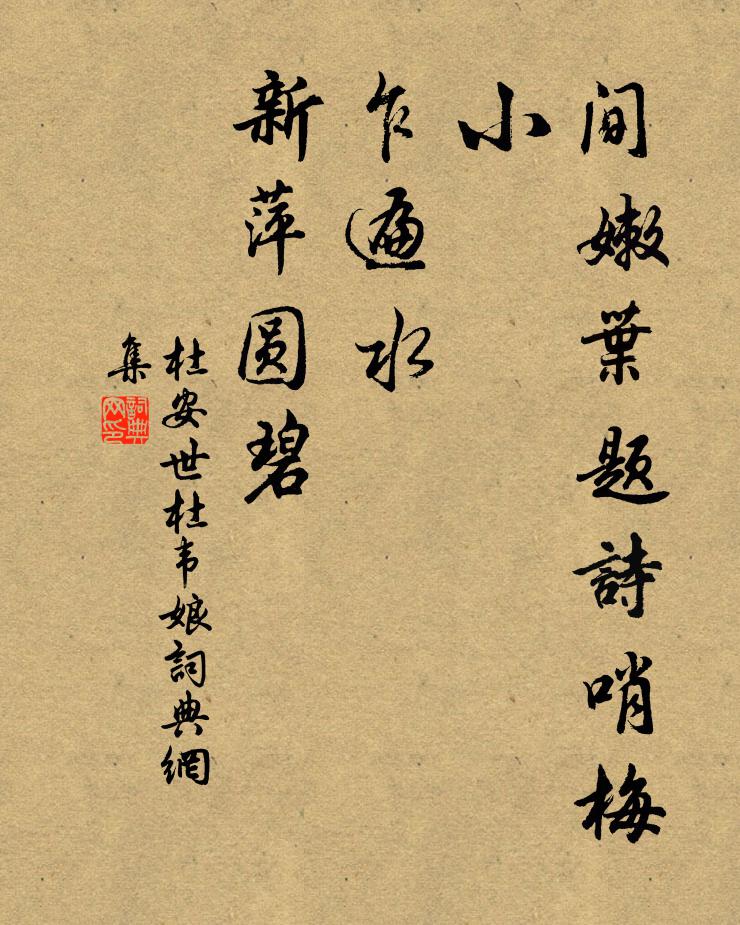 间嫩葉题詩哨梅
小
乍遍水
新萍圆碧
杜安世杜韦娘詞典網
集
詞典网印